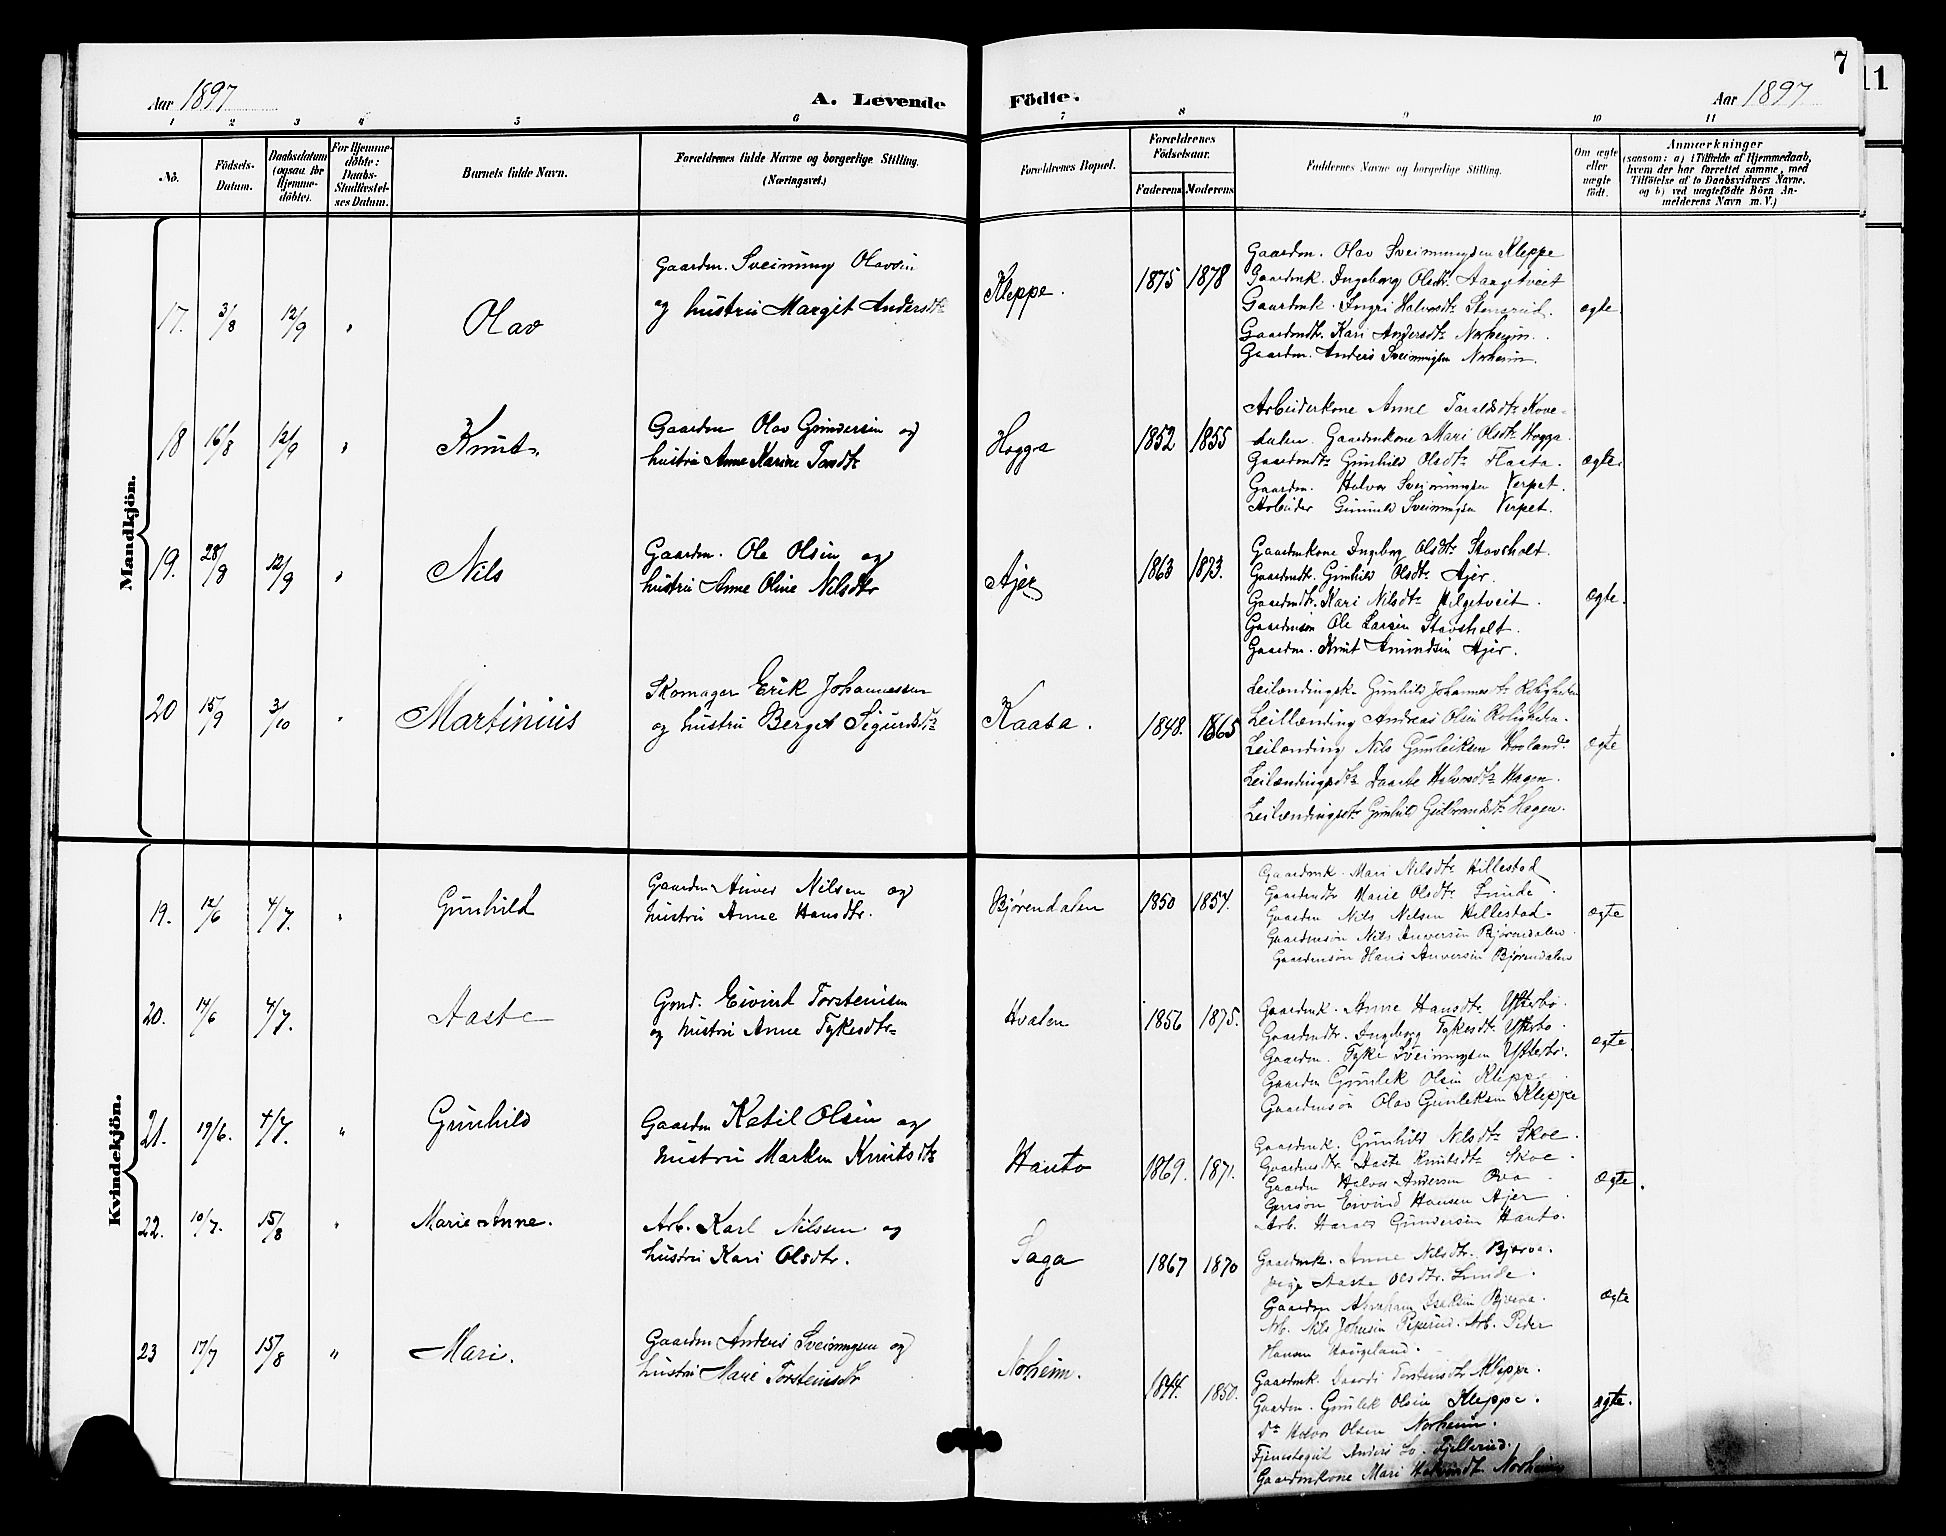 7
11
Aar 1897
A. Levende
Födte.
Aar 1897
1 2 3 4 5 6 7 8 9 10 11
No.
Födsels-
Datum.
Daabsdatum
(ogsaa for
Hjemme-
döbte).
For Hjemme-
döbte:
Daabs-
Stadfæstel-
ses Datum.
Barnets fulde Navn.
Forældrenes fulde Navne og borgerlige Stilling.
(Næringsvei.)
Forældrenes Bopæl.
Forældrenes
Födselsaar.
Faderens Moderens
Faddernes Navne og borgerlige Stilling.
Om ægte
eller
uægte
födt.
Anmærkninger
(saasom: a) i Tilfælde af Hjemmedaab,
hvem der har forrettet samme, med
Tilföielse af to Daabsvidners Navne,
og b) ved uægtefödte Börn An-
melderens Navn m. V.)
Mandkjön.
17. 3/8 12/9 " Olav
Gaardm. Sveinung Olavsen
og hustru Margit Andersdtr
Kleppe. 1875 1878
Gaardm. Olav Sveinungsen Kleppe
Gaardmk. Ingeborg Olsdtr. Aasgetveit
Gaardmk. Ingri Halvosdtr Stensrud.
Gaardmdtr. Kari Andersdtr Norheim.
Gaardm. Anders Sveinungsen Norheim.
ægte
18 16/8 12/9 " Knut.
Gaardm Olav Gundersen og
hustru Anne Karine Tordtr
Hogga 1852 1855
Arbeiderkone Anne Taraldsdtr Kove-
dalen. Gaardmkone Mari Olsdtr Hogga.
Gaardmdtr Gunhild Olsdtr Flaata.
Gaardm. Halvor Sveinungsen Verpet.
Arbeider Gunnuld Sveinungsen Verpet.
ægte.
19. 28/8 12/9 " Nils
Gaardm. Ole Olsen og
hustru Anne Oline Nilsdtr
Ajer 1863 1873.
Gaardmkone Ingeborg Olsdtr Stavsholt.
Gaardmdtr. Gunhild Olsdtr Ajer.
Gaardmdtr. Kari Nilsdtr Helgetveit.
Gaardmsøn Ole Larsen Stavsholt.
Gaardm. Knut Amundsen Ajer.
ægte.
20 15/9 3/10 " Martinius
Skomager Erik Johannessen
og hustru Berget Sigurdsdtr
Kaasa. 1848. 1865
Leilændingsk. Gunhild Johannesdtr Roligheten
Leillænding Andreas Olsen Roligheten.
Leilænding Nils Gunleiksen Hooland.
Leilændingsdtr Daarte Halvordtr Hagen.
Leilændingsdtr Gunhild Gulbrandsdtr Hagen.
ægte
Kvindekjön.
19. 12/6 4/7. " Gunhild
Gaardm Anver Nilsen og
hustru Anne Hansdtr.
Bjørendalen 1850 1854.
Gaardmk. Mari Nilsdtr. Hillestad
Gaardmdtr Marie Olsdtr. Lunde.
Gaardm Nils Nilsen Hillestad.
Gaardmsøn Nils Anversen Bjørendalen.
Gaardmsøn Hans Anversen Bjørendalen
ægte
20. 14/6 4/7. Aaste
Gmd. Eivind Torsteinsen
og hustru Anne Tykesdtr
Hvalen 1856 1875.
Gaardmk. Anne Hansdtr. Ytterbø.
Gaardmdtr. Ingeborg Tykesdtr. Ytterbø.
Gaardm. Tyke Sveinungsen Ytterbø.
Gaardm Gunlek Olsen Kleppe.
Gaardmsøn Olav Gunleksen Kleppe
ægte.
21. 19/6. 4/7. " Gunhild
Gaardm Ketil Olsen og
hustru Marken Knutsdtr
Hauto 1869. 1871.
Gaardmk. Gunhild Nilsdtr Skoe.
Gaardmdtr. Aaste Knutsdtr Skoe.
Gaardm Halvor Andersen Ova.
Gmsøn Eivind Hansen Ajer.
Arb. Harald Gundersen Hauto.
ægte.
22. 10/7. 15/8 " Marie Anne.
Arb. Karl Nilssen og
hustru Kari Olsdtr.
Saga 1867 1870
Gaardmk. Anne Nilsdtr. Bjerva.
Pige Aaste Olsdtr. Lunde.
Gaardm Abraham Isaksen Bjerva.
Arb. Nils Johnsen Peperud. Arb. Peder
Hansen Haugeland.
ægte
23 17/7 15/8 " Mari.
Gaardm Anders Sveinungsen og
hustru Mari Torsteinsdtr
Norheim. 1844. 1850.
Gaardmk. Daardi Torsteinsdtr Kleppe.
Gaardm. Gunlek Olsen Kleppe.
do Halvor Olsen Norheim.
Tjenestegut Anders Fjellerud.
Gaardmkone Mari Halvorsdtr. Norheim
ægte.